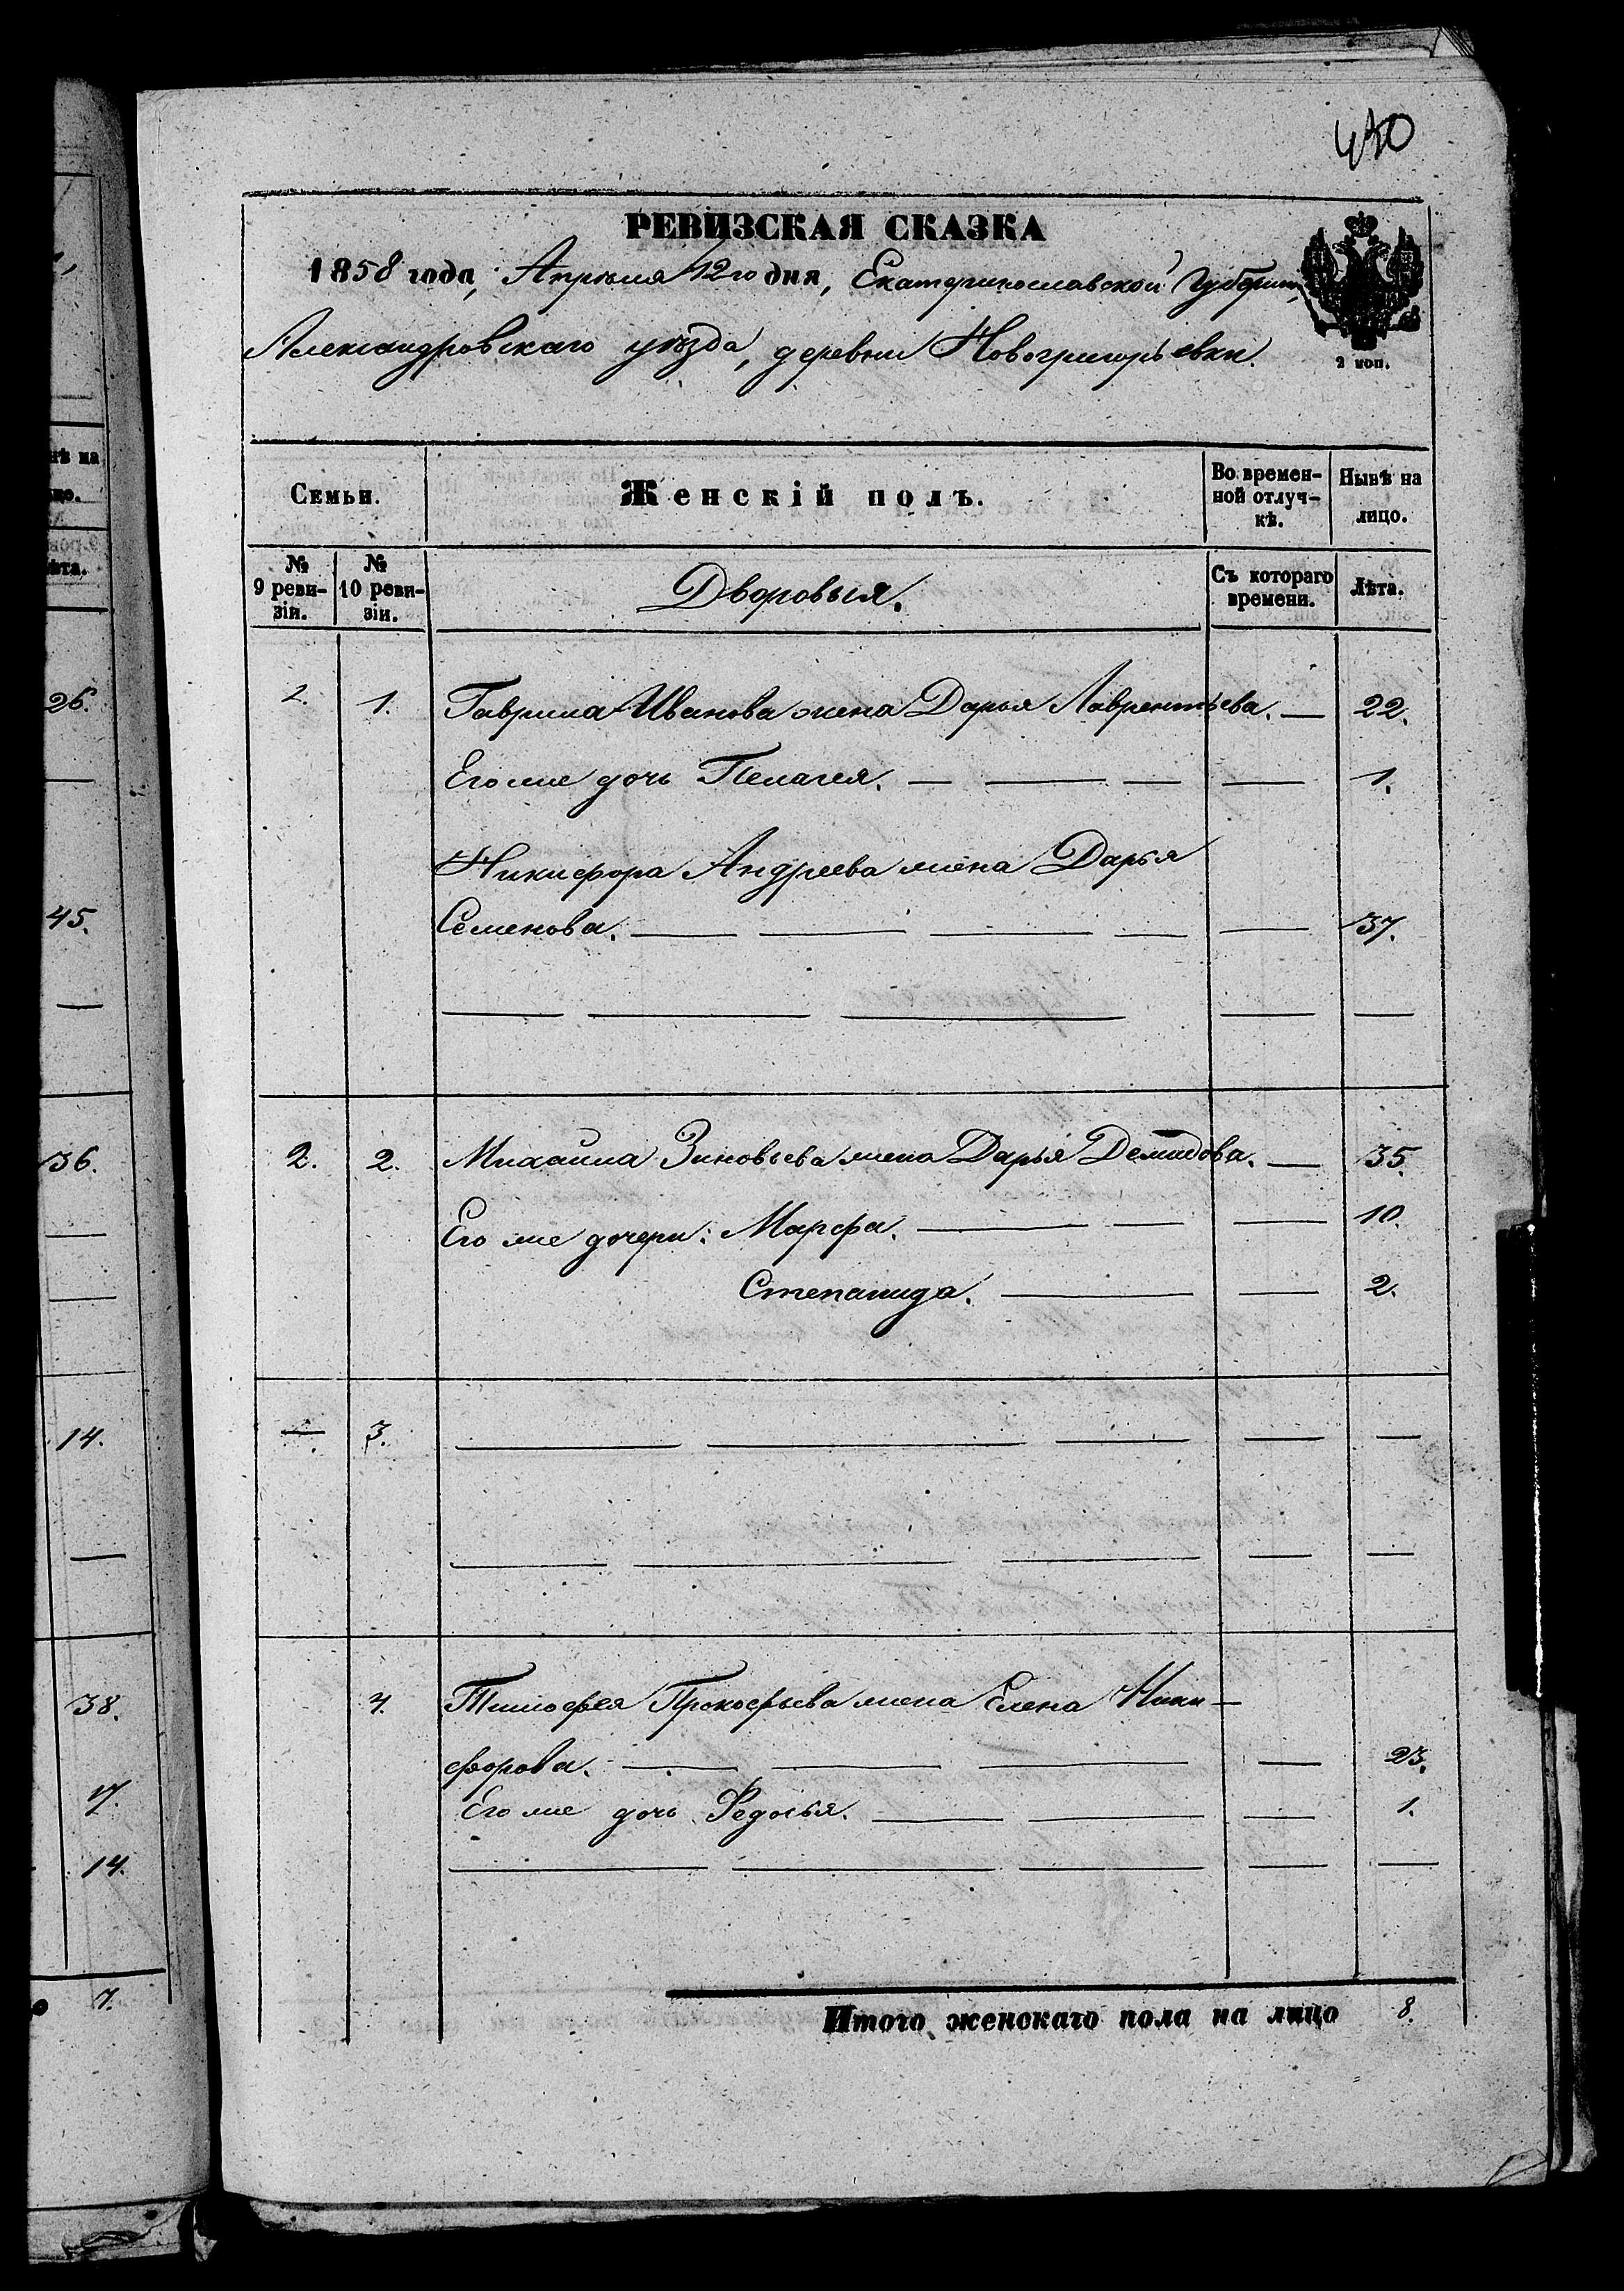 450
РЕВИЗСКАЯ СКАЗКА
1858 года, Апрѣля 12го дня, Екатеринославской Губерніи,
Александровскаго уѣзда, деревни Новогригорьевки.
2 коп.
Семьи. Женскій полъ. Во времен-
ной отлуч-
кѣ. Нынѣ на
лицо.
№
9 реви-
зіи. №
10 реви-
зіи. Дворовыя. Съ котораго
времени. Лѣта.
1. 1. Гаврила Иванова жена Дарья Лаврентьева. — 22.
Его же дочь Пелагея. — — — — 1.
Никифора Андреева жена Дарья
Семенова. — — — — — 37.
2. 2. Михаила Зиновьева жена Дарья Демидова. — 35.
Его же дочери: Марфа. — — — 10.
Степанида. — — 2.
— 3. — — — — —
4. Тимофея Прокофьева жена Елена Ники-
форова. — — — — 23.
Его же дочь Федосья. — — — 1.
Итого женскаго пола на лицо 8.
нѣ на
лицо.
ѣта.
26.
45.
36.
14.
38.
17.
14.
7.